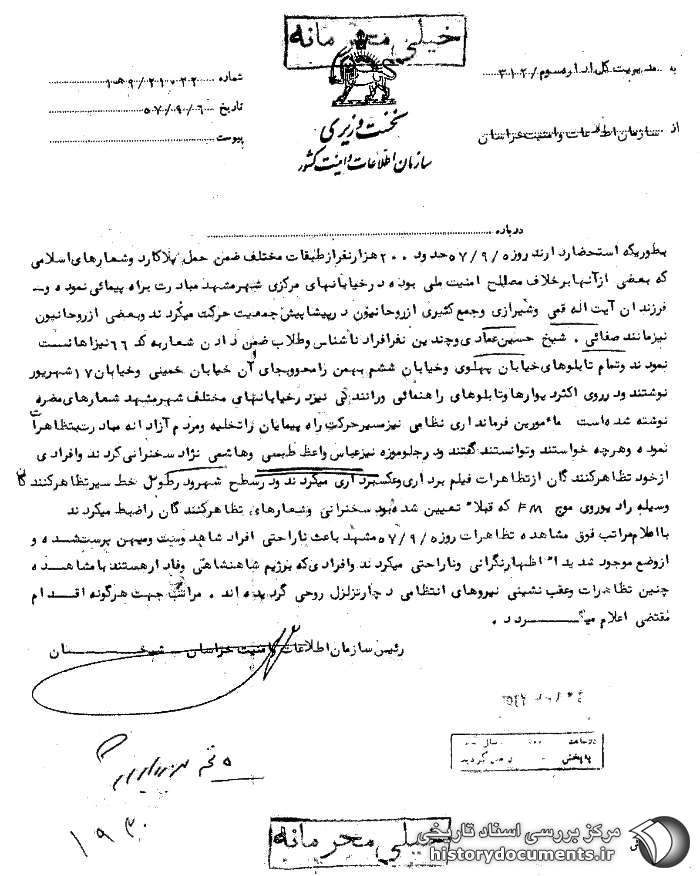 خیلی محرمانه
به مدیریت کل اداره سوم / ۳۱۲
از سازمان اطلاعات و امنیت خراسان
نخست وزیری
سازمان اطلاعات و امنیت کشور
شماره
تاریخ ۵۷/۹/۶
پیوست
درباره
بطوریکه استحضار دارند روز ۵۷/۹/۵ حدود ۲۰۰ هزار نفر از طبقات مختلف ضمن حمل پلاکارد و شعارهای اسلامی
که بعضی از آنها برخلاف مصالح امنیت ملی بوده در خیابانهای مرکزی شهر مشهد مبادرت براه پیمائی نموده و
فرزندان آیت اله قمی و شیرازی و جمع کثیری از روحانیون در پیشاپیش جمعیت حرکت میکردند و بعضی از روحانیون
نیز مانند صفائی ، شیخ حسین عمادی و چندین نفر افراد ناشناس و طلاب ضمن دادن شعار به کد ۶۶ نیز اهانت
نمودند و تمام تابلوهای خیابان پهلوی و خیابان ششم بهمن را محو و بجای آن خیابان خمینی و خیابان ۱۷ شهریور
نوشتند و در روی اکثر دیوارها و تابلوهای راهنمائی و رانندگی نیز در خیابانهای مختلف شهر مشهد شعارهای مضره
نوشته شده است مأمورین فرمانداری نظامی نیز مسیر حرکت راه پیمایان را تخلیه و مردم آزادانه مبادرت بتظاهرات
نموده و هرچه خواستند و توانستند گفتند و در جلو موزه نیز عباس واعظ طبسی و هاشمی نژاد سخنرانی کردند و افرادی
از خود تظاهرکنندگان از تظاهرات فیلم برداری و عکسبرداری میکردند و در سطح شهر و در طول خط سیر تظاهرکنندگان
وسیله رادیو روی موج FM که قبلا تعیین شده بود سخنرانی و شعارهای تظاهرکنندگان را ضبط میکردند
با اعلام مراتب فوق مشاهده تظاهرات روز ۵۷/۹/۵ مشهد باعث ناراحتی افراد شاهدوست و میهن پرست شده و
از وضع موجود شدیداً اظهار نگرانی و ناراحتی میکردند و افرادی که برژیم شاهنشاهی وفادار هستند با مشاهده
چنین تظاهرات و عقب نشینی نیروهای انتظامی دچار تزلزل روحی گردیده اند . مراتب جهت هرگونه اقدام
مقتضی اعلام میگردد .
رئیس سازمان اطلاعات و امنیت خراسان شیخان
خیلی محرمانه
مرکز بررسی اسناد تاریخی
historydocuments.ir